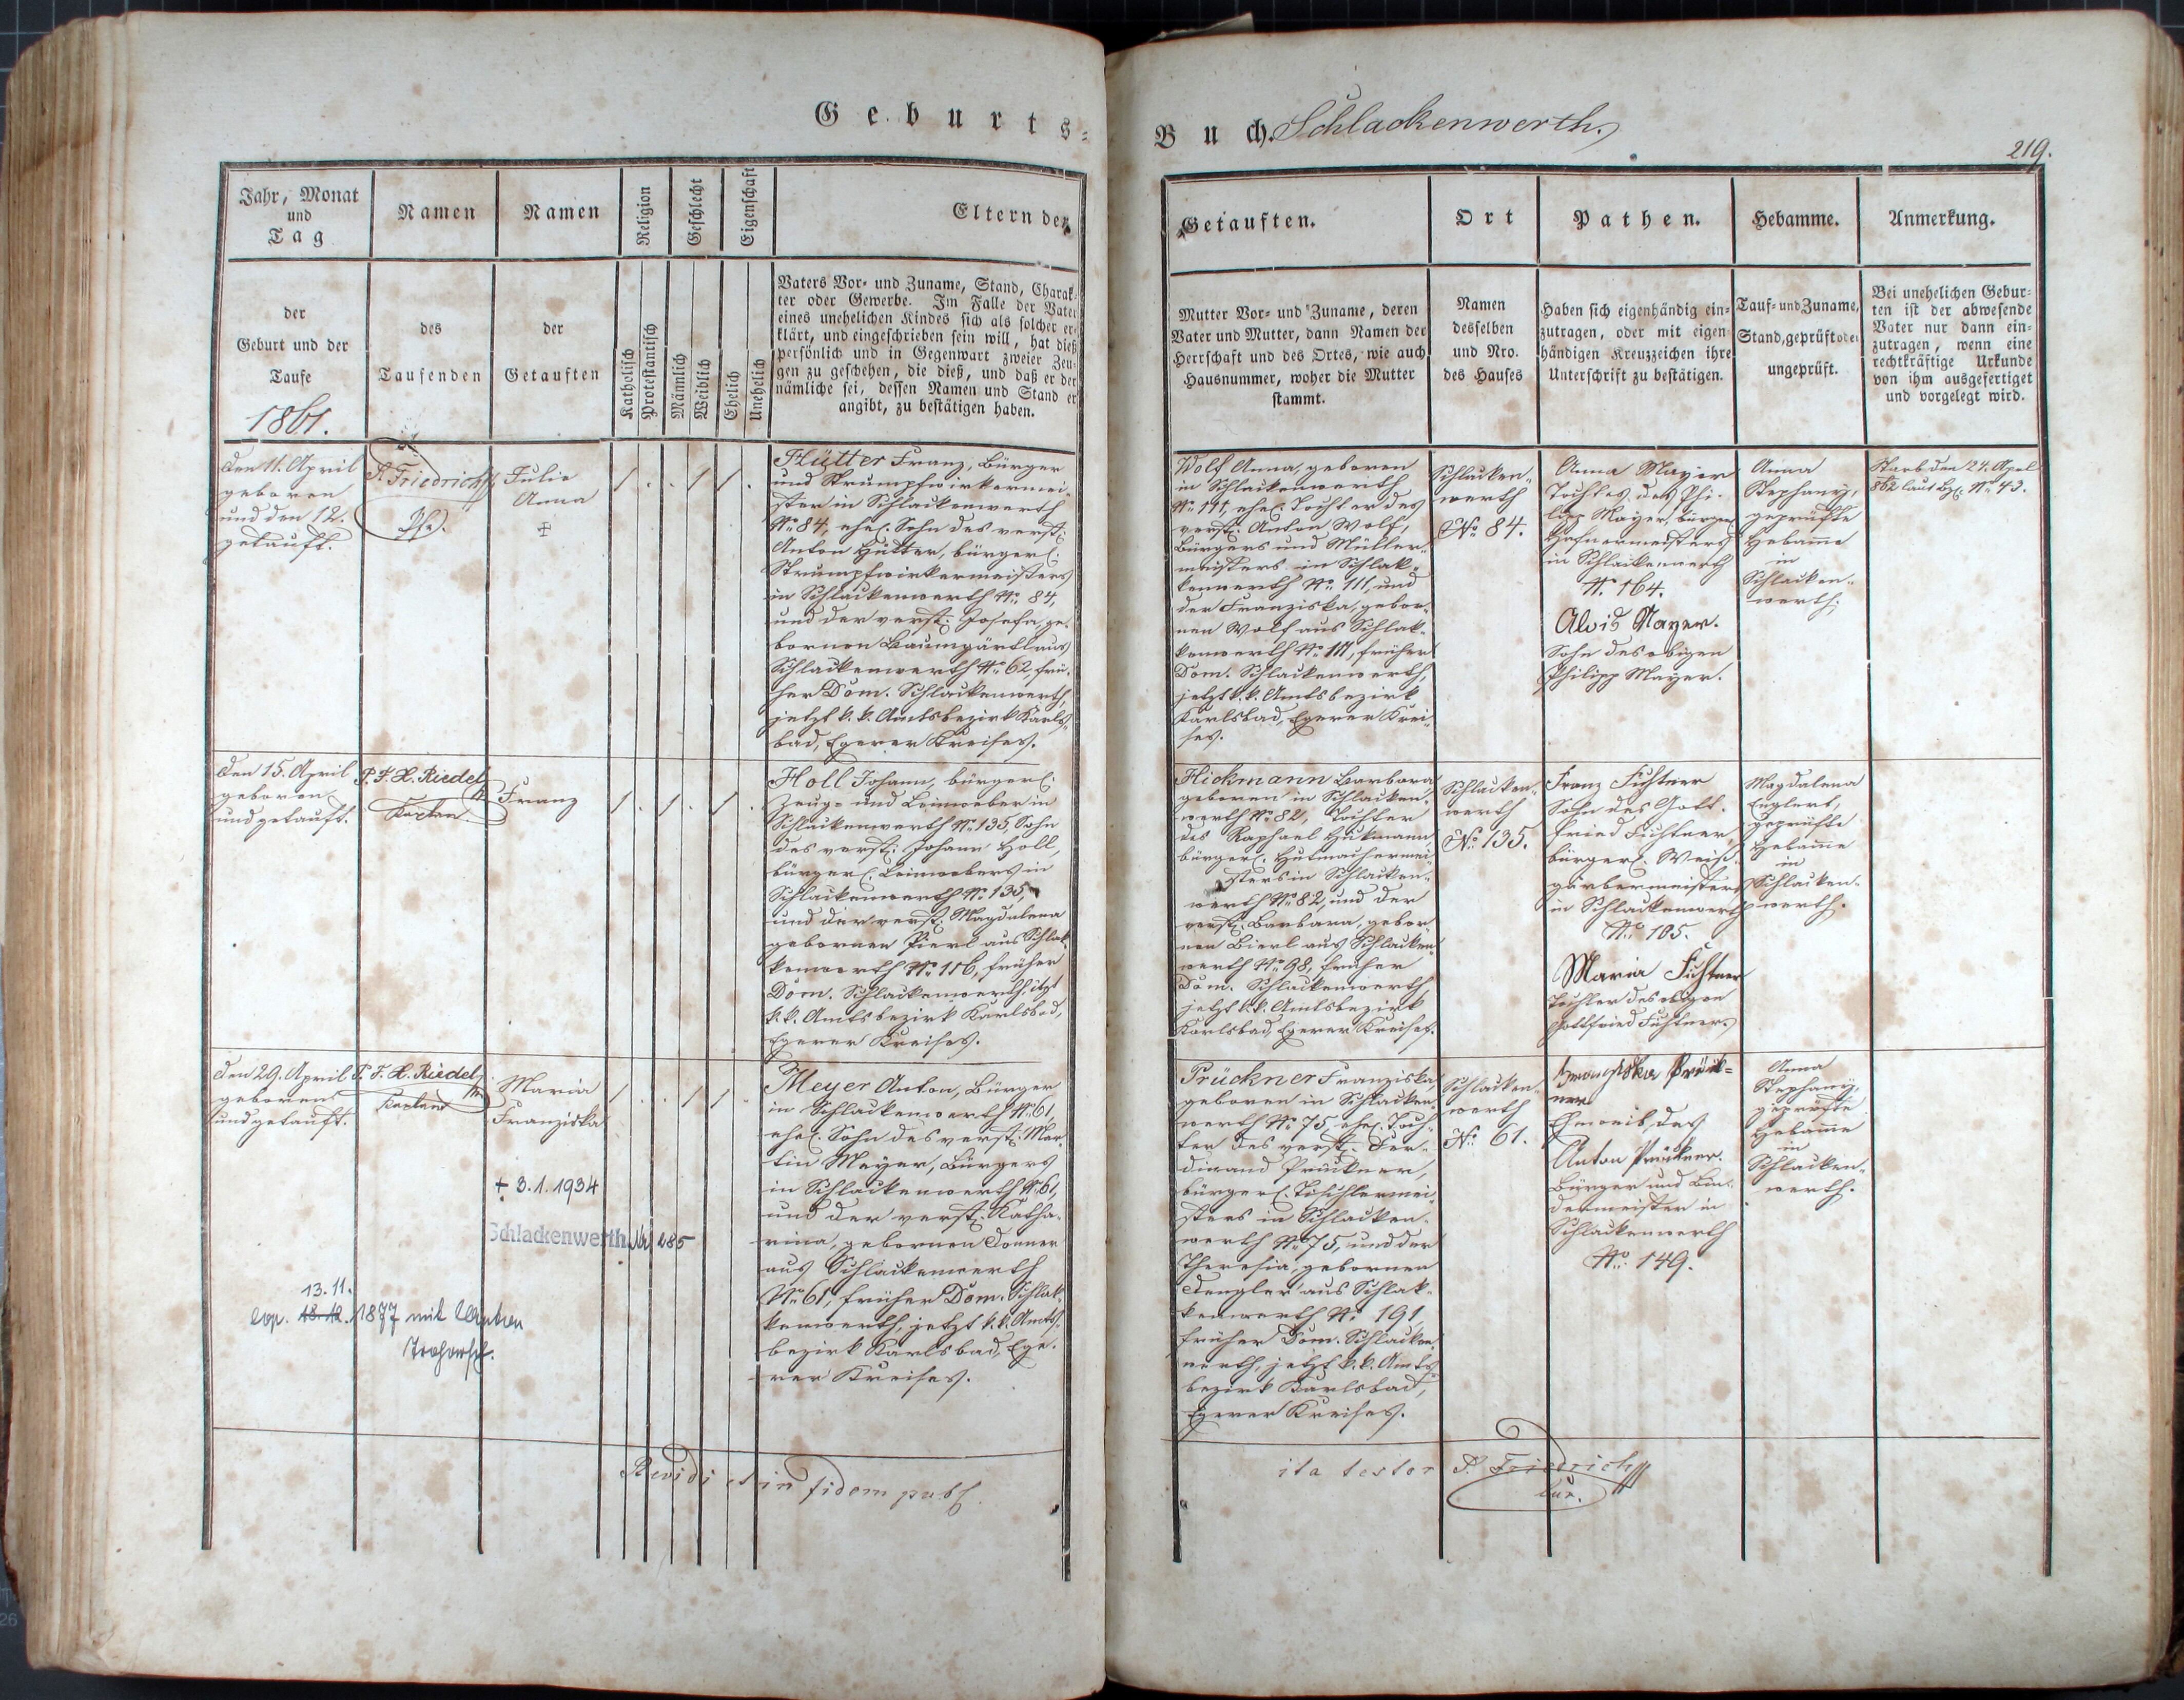 Geburts-
Buch. Schlackenwerth.
219.
Jahr, Monat
und
Tag
Namen
Namen
Religion
Geschlecht
Eigenschaft
Eltern der
der
Geburt und der
Taufe
1861.
des
Taufenden
der
Getauften
Katholisch
Protestantisch
Männlich
Weiblich
Ehelich
Unehelich
Vaters Vor- und Zuname, Stand, Charak-
ter oder Gewerbe. Im Falle der Vater
eines unehelichen Kindes sich als solcher er-
klärt, und eingeschrieben sein will, hat dieß
persönlich und in Gegenwart zweier Zeu-
gen zu geschehen, die dieß, und daß er der
nämliche sei, dessen Namen und Stand er
angibt, zu bestätigen haben.
Getauften.
Ort
Pathen.
Hebamme.
Anmerkung.
Mutter Vor- und Zuname, deren
Vater und Mutter, dann Namen der
Herrschaft und des Ortes, wie auch
Hausnummer, woher die Mutter
stammt.
Namen
desselben
und Nro.
des Hauses
Haben sich eigenhändig ein-
zutragen, oder mit eigen-
händigen Kreuzzeichen ihre
Unterschrift zu bestätigen.
Tauf- und Zuname,
Stand, geprüft oder
ungeprüft.
Bei unehelichen Gebur-
ten ist der abwesende
Vater nur dann ein-
zutragen, wenn eine
rechtkräftige Urkunde
von ihm ausgefertiget
und vorgelegt wird.
Den 11. April
geboren
und den 12.
getauft.
P. Friedrich
Pfr.
Julie
Anna
Hütter Franz, Bürger
und Strumpfwirkermei-
ster in Schlackenwerth
No. 84, ehel. Sohn des verst.
Anton Hütter, bürgerl.
Strumpfwirkermeisters
in Schlackenwerth No. 84,
und der verst. Josefa, ge-
bornen Baumgärtl aus
Schlackenwerth No. 62, frü-
her Dom. Schlackenwerth,
jetzt k. k. Amtsbezirk Karls-
bad, Egerer Kreises.
Wolf Anna, geboren
in Schlackenwerth
No. 111, ehel. Tochter des
verst. Anton Wolf,
Bürgers und Müller-
meisters in Schlak-
kenwerth No. 111, und
der Franziska, gebor-
nen Wolf aus Schlak-
kenwerth No. 117, früher
Dom. Schlackenwerth,
jetzt k. k. Amtsbezirk
Karlsbad, Egerer Krei-
ses.
Schlacken-
werth
No. 84.
Anna Mayer
Tochter des Phi-
lipp Mayer, bürgerl.
Hafnermeisters
in Schlackenwerth
No. 164.
Alois Mayer.
Sohn des obigen
Philipp Mayer.
Anna
Stephany,
geprüfte
Hebamme
in
Schlacken-
werth.
Starb den 24. April
862 laut No. 43.
Den 15. April
geboren
und getauft.
P. F. H. Riedel
Kaplan.
Franz
Holl Johann, bürgerl.
Zeug- und Leinweber in
Schlackenwerth No. 135, Sohn
des verst. Johann Holl,
bürgerl. Leinwebers in
Schlackenwerth No. 135,
und der verst. Magdalena
gebornen Pierl aus Schlak-
kenwerth No. 116, früher
Dom. Schlackenwerth, jetzt
k. k. Amtsbezirk Karlsbad,
Egerer Kreises.
Hickmann Barbara
geboren in Schlacken-
werth No. 82, Tochter
des Raphael Hickmann
bürgerl. Hutmachermei-
sters in Schlacken-
werth No. 82, und der
verst. Barbara, gebor-
nen Bierl aus Schlacken-
werth No. 98, früher
Dom. Schlackenwerth,
jetzt k. k. Amtsbezirk
Karlsbad, Egerer Kreises.
Schlacken-
werth
No. 135.
Franz Fichtner
Sohn des Gott-
fried Fichtner,
bürgerl. Weiß-
gärbermeisters
in Schlackenwerth
No. 105.
Maria Fichtner
Tochter des obigen
Gottfried Fichtner.
Magdalena
Englert,
geprüfte
Hebamme
in
Schlacken-
werth.
Den 29. April
geboren
und getauft.
P. F. H. Riedel
Kaplan
Maria
Franziska
+ 3.1.1934
Schlackenwerth Nr 285
13.11.
cop. 18.12. 1877 mit Anton
Meyer Anton, Bürger
in Schlackenwerth No. 61,
ehel. Sohn des verst. Mar-
tin Meyer, Bürgers
in Schlackenwerth No. 61,
und der verst. Katha-
rina, gebornen Donner
aus Schlackenwerth
No. 61, früher Dom. Schlak-
kenwerth, jetzt k. k. Amts-
bezirk Karlsbad, Ege-
rer Kreises.
Prückner Franziska,
geboren in Schlacken-
werth No. 75, ehel. Toch-
ter des verst. Fer-
dinand Prückner,
bürgerl. Tischlermei-
sters in Schlacken-
werth No. 75, und der
Theresia, gebornen
Dengler aus Schlak-
kenwerth No. 191,
früher Dom. Schlacken-
werth, jetzt k. k. Amts-
bezirk Karlsbad,
Egerer Kreises.
Schlacken-
werth
No. 61.
Franziska Prück-
ner
Eheweib des
Anton Prückner.
Bürger und Bin-
dermeister in
Schlackenwerth
No. 149.
Anna
Stephany,
geprüfte
Hebamme
in
Schlacken-
werth.
Revidi et in fidem publ.
ita testor P. Friedrich